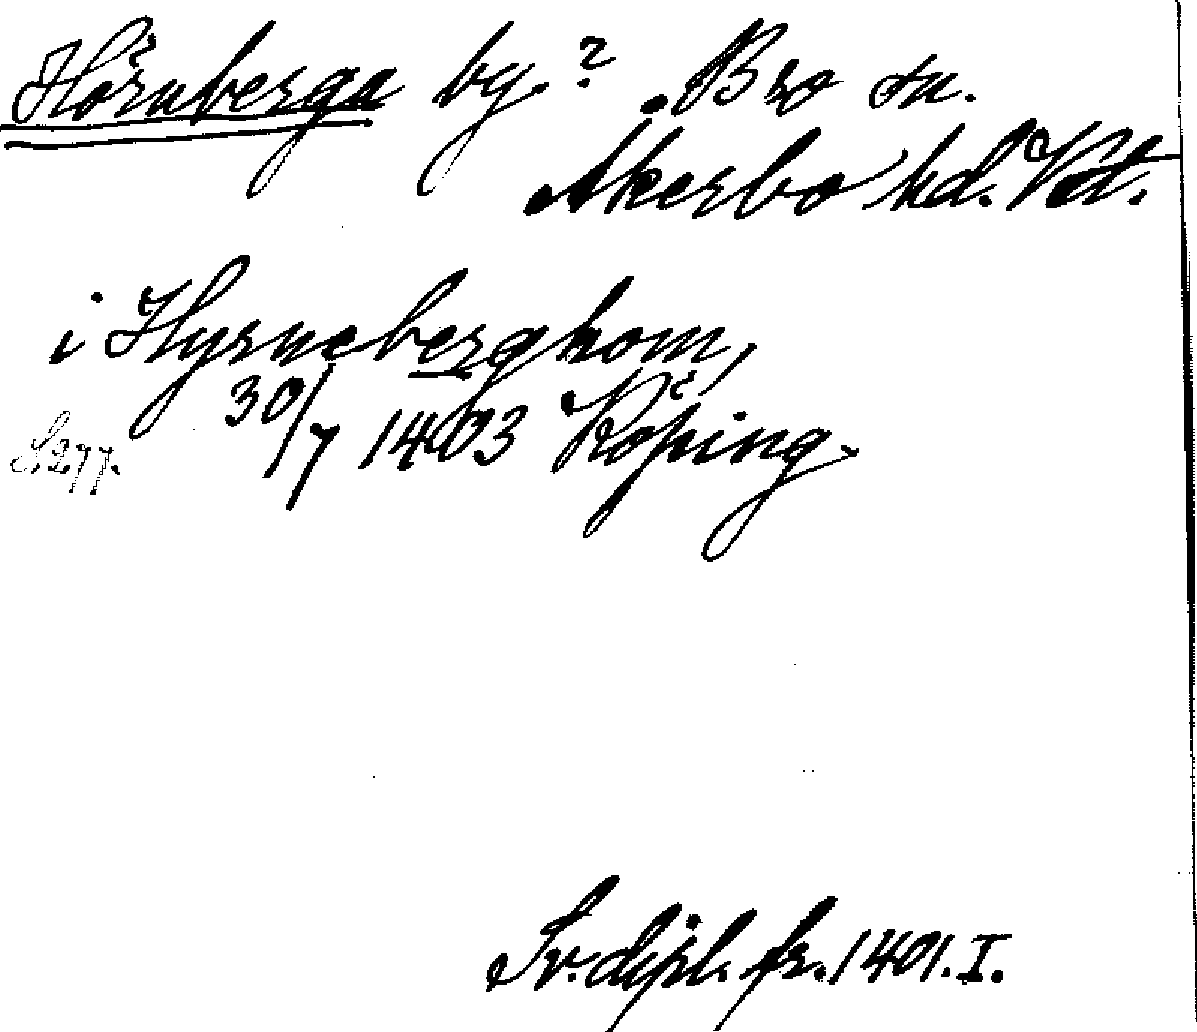 Hörnberga by.? Bro sn.
Åkerbo hd. Vstl.
i Hyrneberghom,
30/7 1403 Köping.
S. 277.
Sv. dipl. fr. 1401. I.